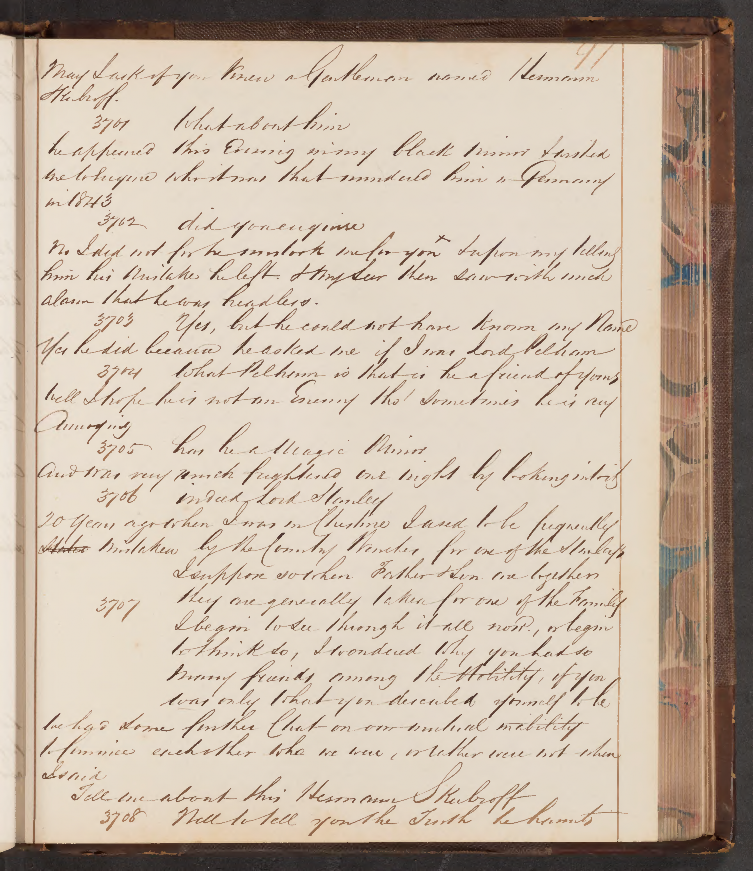 91
May I ask if you knew a Gentleman named Hermann
Skubroff.
3701 What about him
he appeared this Evening in my black Mirror & wished
me to Enquire who it was that murdered him in Germany
in 1843
3702 did you enquire
No I did not for he mistook me for you & upon my telling
him his Mistake he left. & My Seer then saw with much
alarm that he was headless.
3703 Yes, but he could not have known my Name
Yes he did because he asked me if I was Lord Pelham
3704 What Pelham is that is he a friend of yours
Well I hope he is not an Enemy tho' Sometimes he is very
Annoying
3705 has he a Magic Mirror
and was very much frightened one night by looking into it
3706 indeed Lord Stanley
20 Years ago when I was in Cheshire I used to be frequently
mistaken by the Country for one of the Stanleys
I suppose so when Father & Son are together
3707 they are generally taken for one of the Family
I begin to see through it all now, or begin
to think so, I wondered why you had so
many friends among the Nobility, if you
was only what you described yourself to be
we had some further Chat on our mutual inability
to convince each other who we were, or rather were not when
I said
Tell me about this Hermann Skubroff
3708 Well to tell you the Truth he haunts